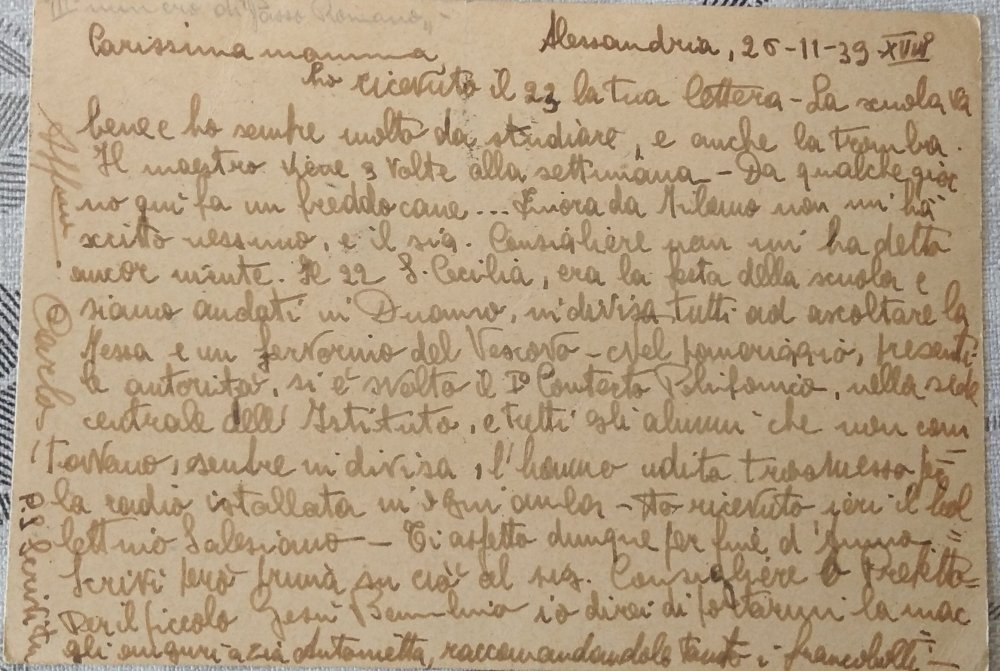 III numero di Passo Romano„
Carissima mamma, Alessandria, 26-11-39-XVIII°
ho ricevuto il 23 la tua lettera - La scuola va
bene e ho sempre molto da studiare, e anche la tromba.
Il maestro viene 3 volte alla settimana - Da qualche gior
no qui fa un freddo cane... Finora da Milano non mi ha
scritto nessuno, e il sig. Consigliere non mi ha detto
ancor niente. Il 22 S. Cecilia, era la festa della scuola e
siamo andati in Duomo, in divisa tutti ad ascoltare la
Messa e un fervorino del Vescovo - Nel pomeriggio, presenti
le autorità, si è svolto il I° Concerto Polifonico, nella sede
centrale dell'Istituto, e tutti gli alunni che non can
tavano, sempre in divisa, l'hanno udito trasmesso per
la radio istallata in ogni aula - Ho ricevuto ieri il bol
lettino Salesiano - Ti aspetto dunque per fine d'Anno =
Scrivi però prima su ciò al sig. Consigliere o Prefetto =
Per il piccolo Gesù Bambino io direi di portarmi la
gli auguri a zia Antonietta, raccomandandole tanto i francobolli =
Affmo
Carlo
P.S. Scrivi